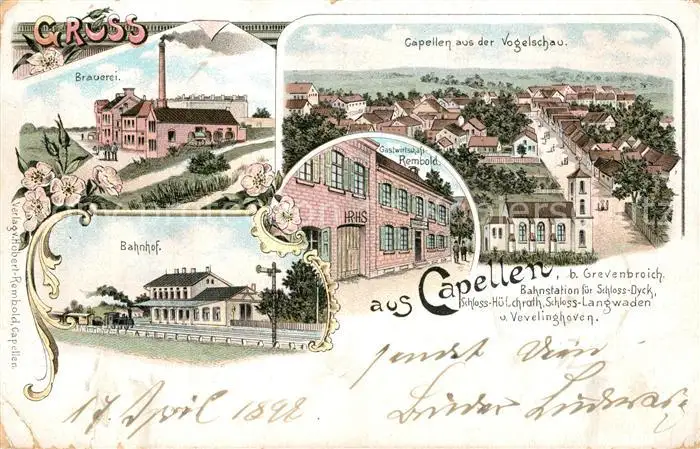 GRUSS
Brauerei.
Capellen aus der Vogelschau.
Gastwirtschaft
Rembold.
H.R.H.S
Bahnhof.
aus Capellen, b. Grevenbroich.
Bahnstation für Schloss-Dyck,
Schloss-Hülchrath, Schloss-Langwaden
u. Vevelinghoven.
Verlag v. Hubert Rembold, Capellen.
sendet Dein
Bruder
17 April 1898